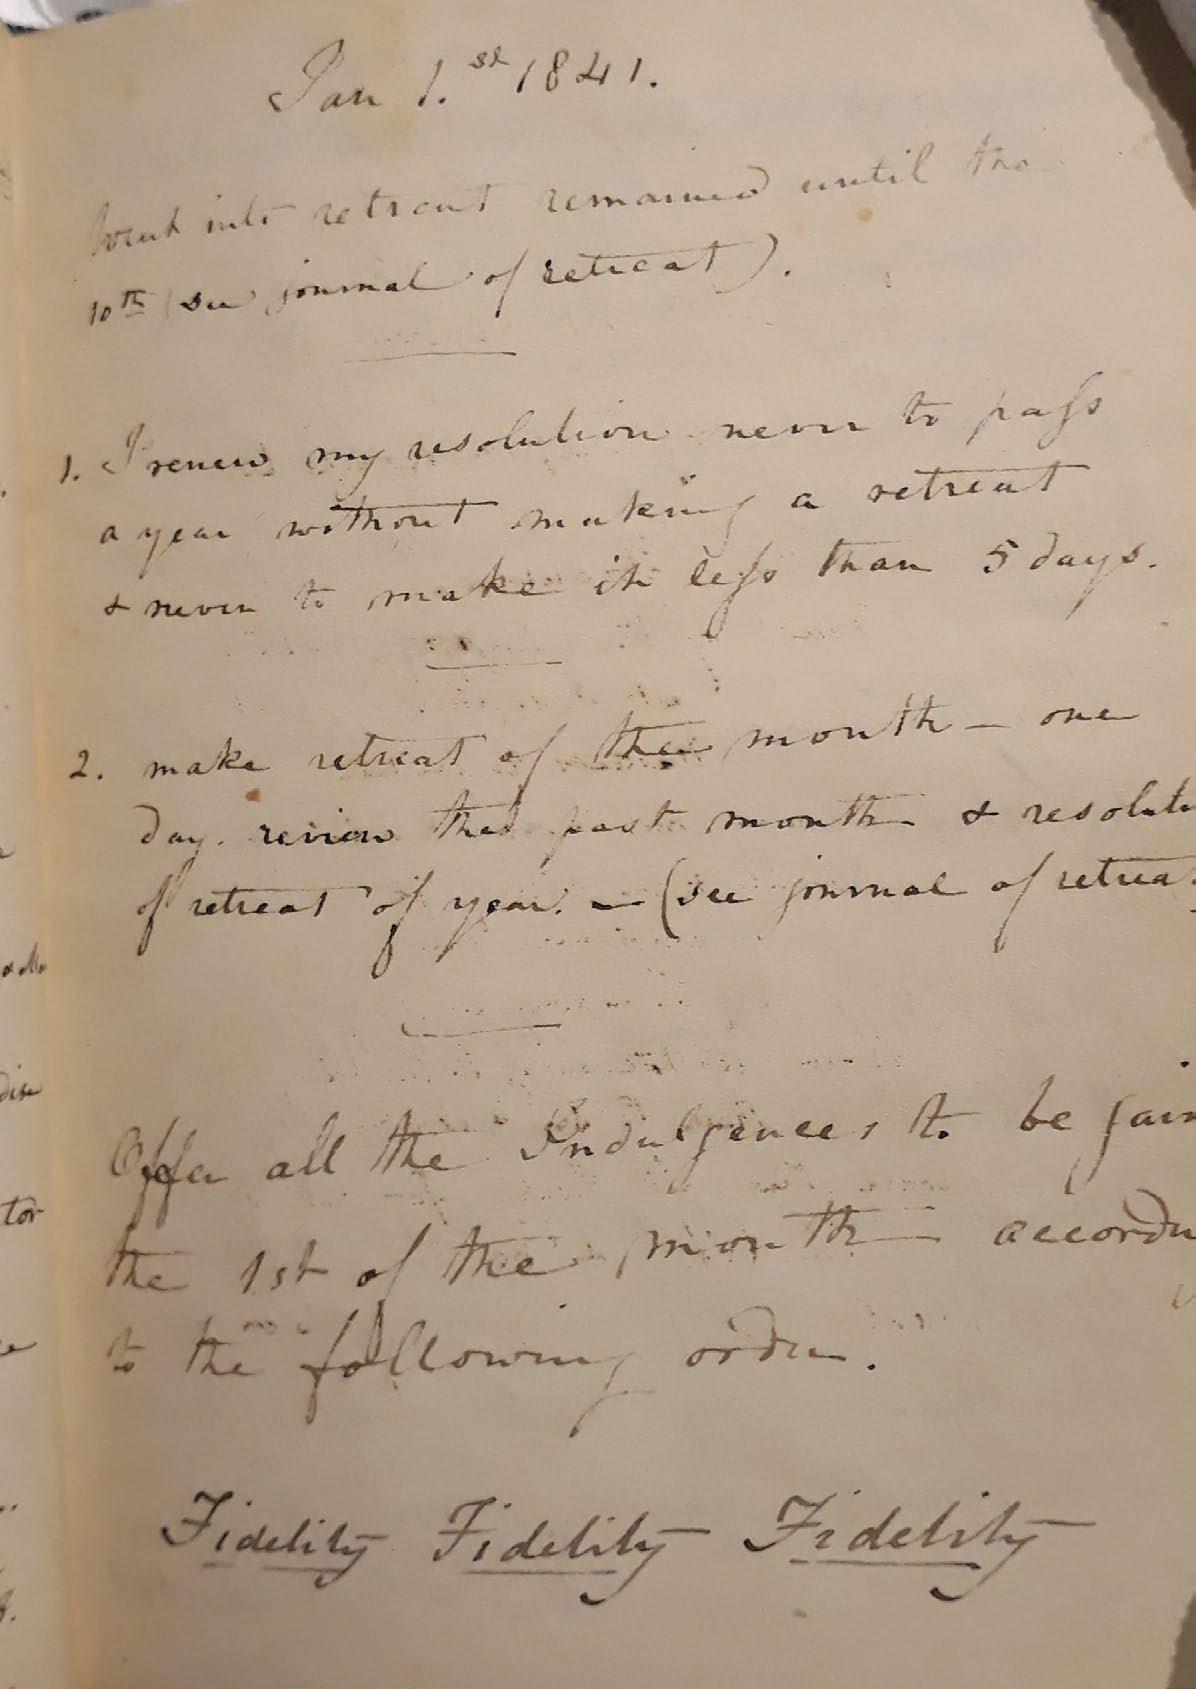 Jan 1.st 1841.
Went into retreat remained until the
10th (see journal of retreat).
1. I renew my resolution never to pass
a year without making a retreat
& never to make it less than 5 days.
2. make retreat of the month - one
day. review the past month & resolut
of retreat of year. - (see journal of retrea
Offer all the Indulgences to be gain
the 1st of the month accordin
to the following order.
Fidelity Fidelity Fidelity